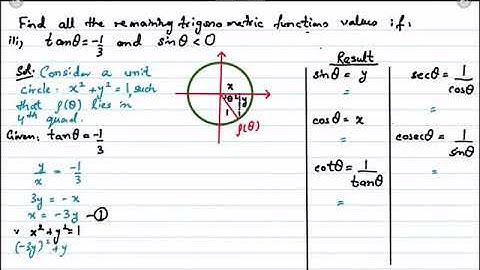 Find all the remaining trigonometric functions values if:
iii, tanθ = -1/3 and sinθ < 0
Sol: Consider a unit
circle: x² + y² = 1, such
that P(θ) lies in
4th quad.
Given: tanθ = -1/3
y/x = -1/3
3y = -x
x = -3y —①
∵ x² + y² = 1
(-3y)² + y
x
θ
y
1
P(θ)
Result
sinθ = y
=
cosθ = x
=
cotθ = 1/tanθ
=
secθ = 1/cosθ
=
cosecθ = 1/sinθ
=